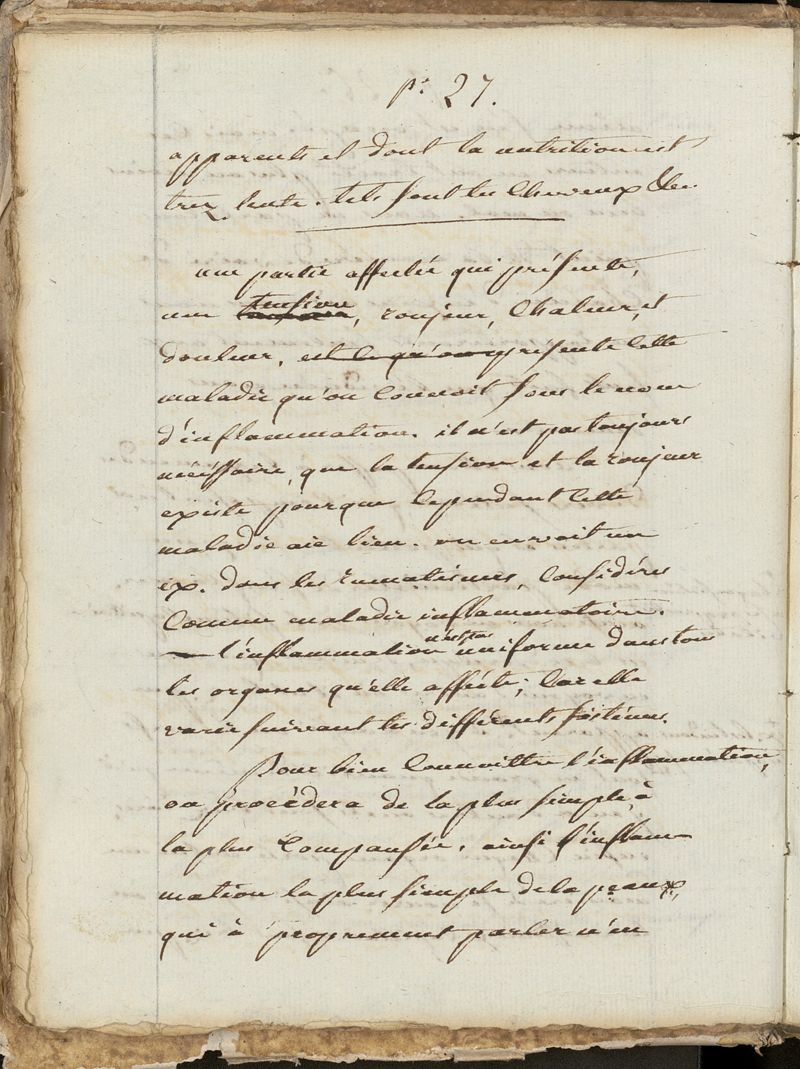 p. 27.
apparents et dont la nutrition est
trez lente. tels sont les cheveux &c.
une partie affectée qui présente,
une tension, roujeur, chaleur, et
douleur, est ce qu'on présente cette
maladie qu'on connoit sous le nom
d'inflammation. il n'est pas toujours
nécéssaire, que la tension et la roujeur
existe pourque cependant cette
maladie aie lieu. on en voit un
ex. dans les rumatismes, considérés
comme maladie inflammatoire.
— l'inflammation n'est pas uniforme dans tous
les organes qu'elle afféte; car elle
varie suivant les différents sistêmes.
Pour bien connoittre l'inflammation,
on procédera de la plus simple à
la plus compausée. ainsi l'inflam
mation la plus simple de la peaux,
qui à proprement parler n'en